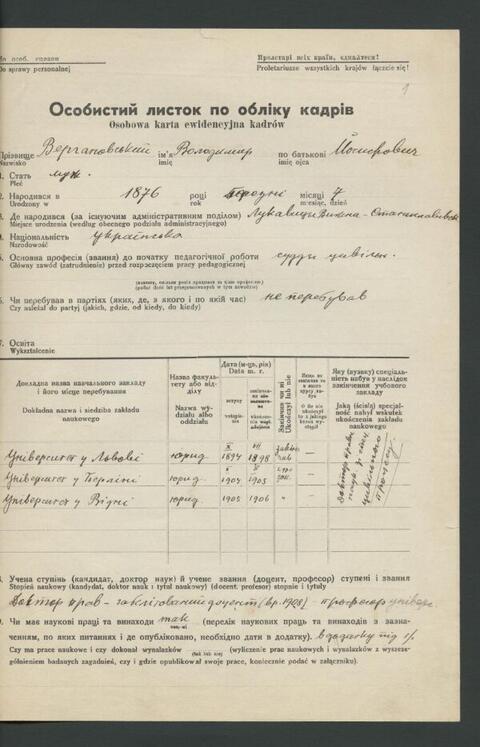 До особ. справи
Do sprawy personalnej
Пролетарі всіх країн, єднайтеся!
Proletariusze wszystkich krajów łączcie się!
1
Особистий листок по обліку кадрів
Osobowa karta ewidencyjna kadrów
Прізвище Вергановський ім'я Володимир по батькові Йосифович
Nazwisko imię imię ojca
1. Стать муж.
Płeć
2. Народився в 1876 році грудні місяці 7
Urodzony w rok miesiąc, dzień
3. Де народився (за існуючим адміністративним поділом) Лукавиця Вижна - Станиславівськ
Miejsce urodzenia (według obecnego podziału administracyjnego)
4. Національність українська
Narodowość
5. Основна професія (звання) до початку педагогічної роботи суддя цивільн.
Główny zawód (zatrudnienie) przed rozpoczęciem pracy pedagogicznej
(вказати, скільки років працював за цією професією)
(podać ilość lat przepracowanych w tym zawodzie)
6. Чи перебував в партіях (яких, де, з якого і по який час) не перебував
Czy należał do partyj (jakich, gdzie, od kiedy, do kiedy)
7. Освіта
Wykształcenie
Докладна назва навчального закладу і його місце перебування
Dokładna nazwa i siedziba zakładu naukowego
Назва факультету або відділу
Nazwa wydziału albo oddziału
Дата (м-ць, рік)
Data m. r.
вступу
wstąpienia
Закінчив чи ні
Ukończył lub nie
Яку (вузьку) спеціальність набув у наслідок закінчення учбового закладу
Jaką (ściśle) specjalność nabył wskutek ukończenia zakładu naukowego
Університет у Львові юрид. X 1894 VII 1898 —
Університет у Берліні юрид. X 1904 1905 —
Університет у Відні юрид. 1905 1906 " —
доктор прав
цивільного процесу
8. Учена ступінь (кандидат, доктор наук) й учене звання (доцент, професор) ступені і звання
Stopień naukowy (kandydat, doktor nauk i tytuł naukowy) (docent, profesor) stopnie i tytuły
Доктор прав - габілітований доцент (в р. 1908) - професор універс.
9. Чи має наукові праці та винаходи так (перелік наукових праць та винаходів з зазначенням, по яких питаннях і де опубліковано, необхідно дати в додатку). в додатку під 1/.
Czy ma prace naukowe i czy dokonał wynalazków (tak lub nie) (wyliczenie prac naukowych i wynalazków z wyszczególnieniem badanych zagadnień, czy i gdzie opublikował swoje prace, koniecznie podać w załączniku).